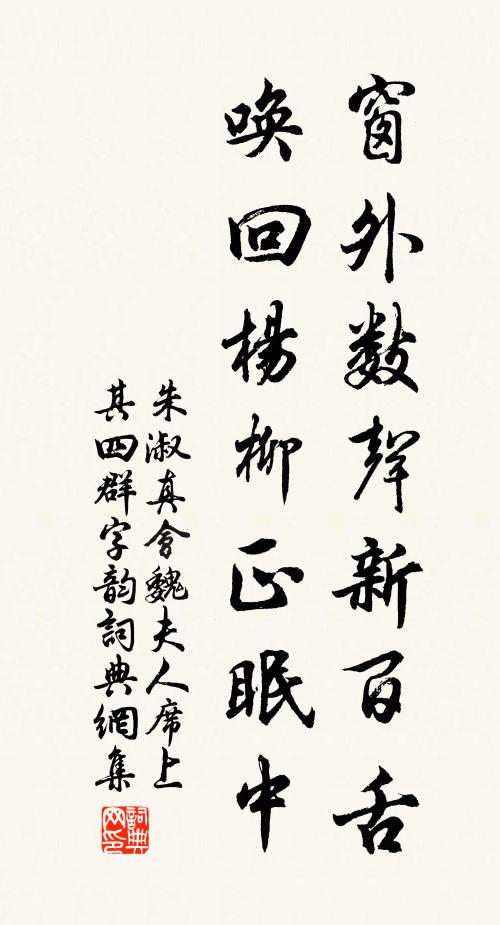 窗外數聲新百舌
喚回楊柳正眠中
朱淑真會魏夫人席上
其四群字韵詞典網集
詞典网印